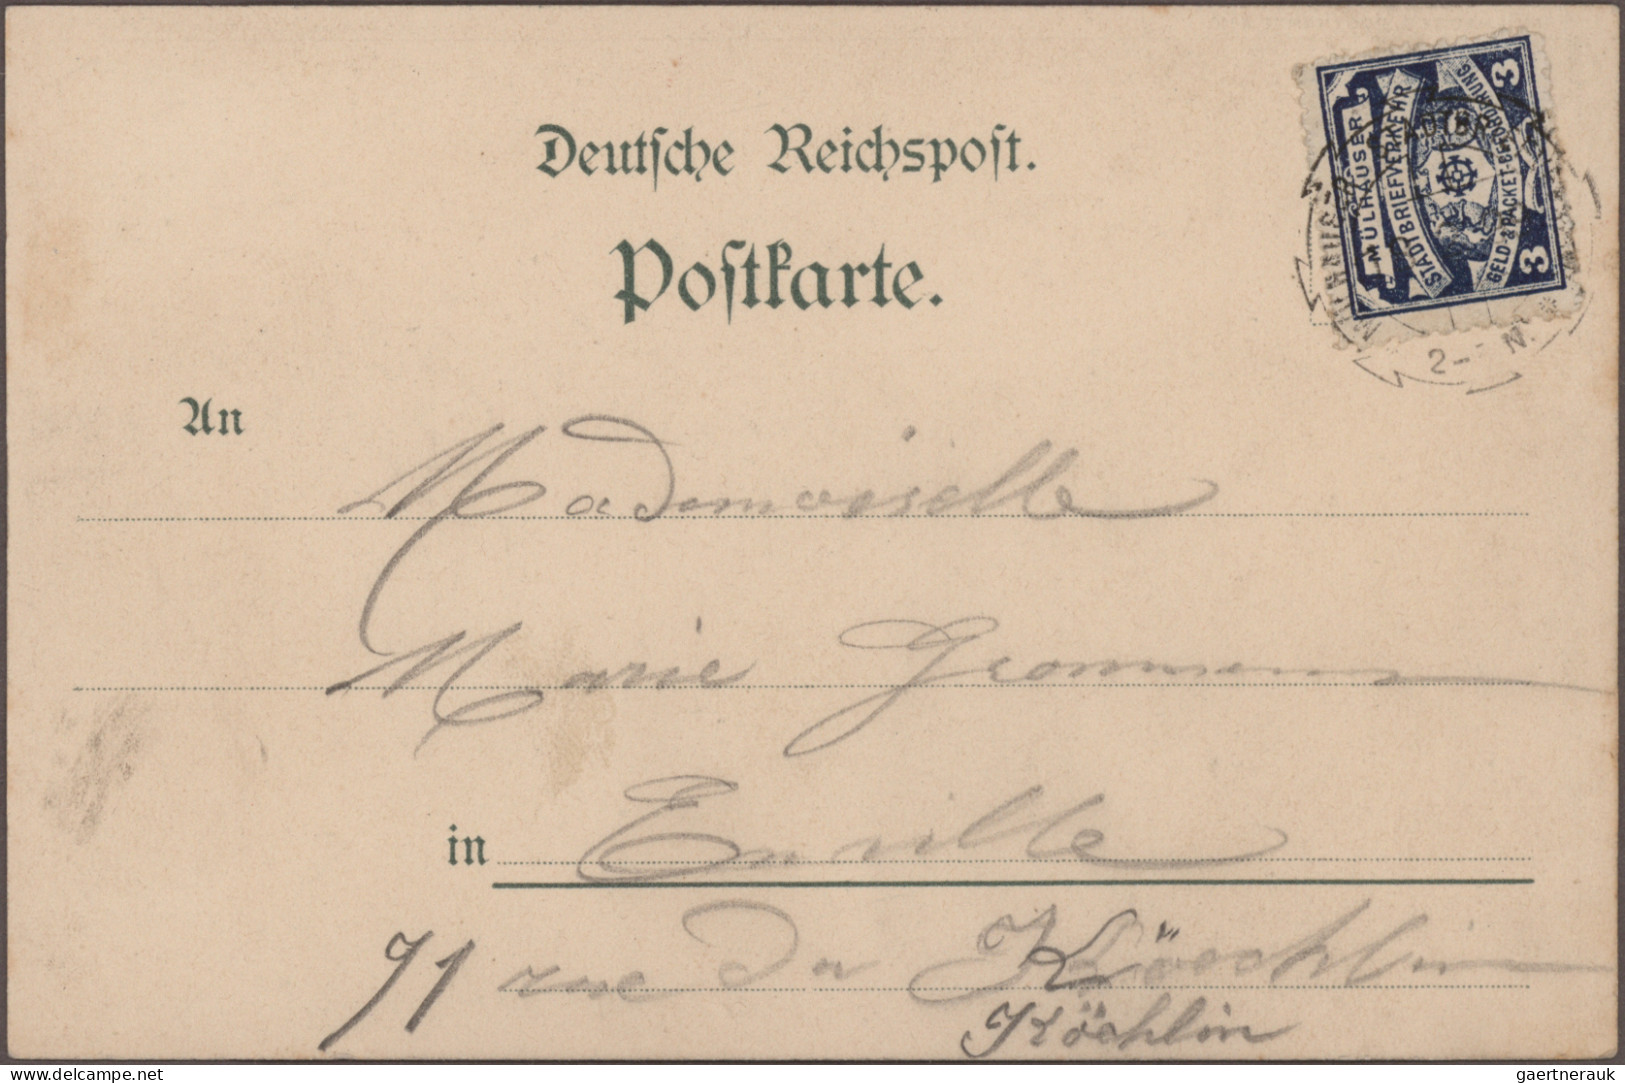 Deutsche Reichspost.
Postkarte.
MÜLHAUSER
STADTBRIEFVERKEHR
GELD- & PACKET-BEFÖRDERUNG
3 3
2- N.
An Mademoiselle
Marie
in En ville
71 rue du Koechlin
Köchlin
www.delcampe.net
gaertnerauk